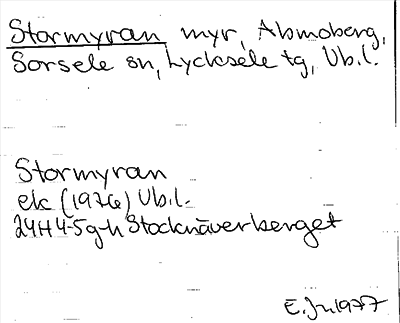 Stormyran myr, Abmoberg,
Sorsele sn, Lycksele tg, Vb.l.
Stormyran
ek (1976) Vb.l.
24H 4-5g-h Stocknäverberget
E. Jn 1977